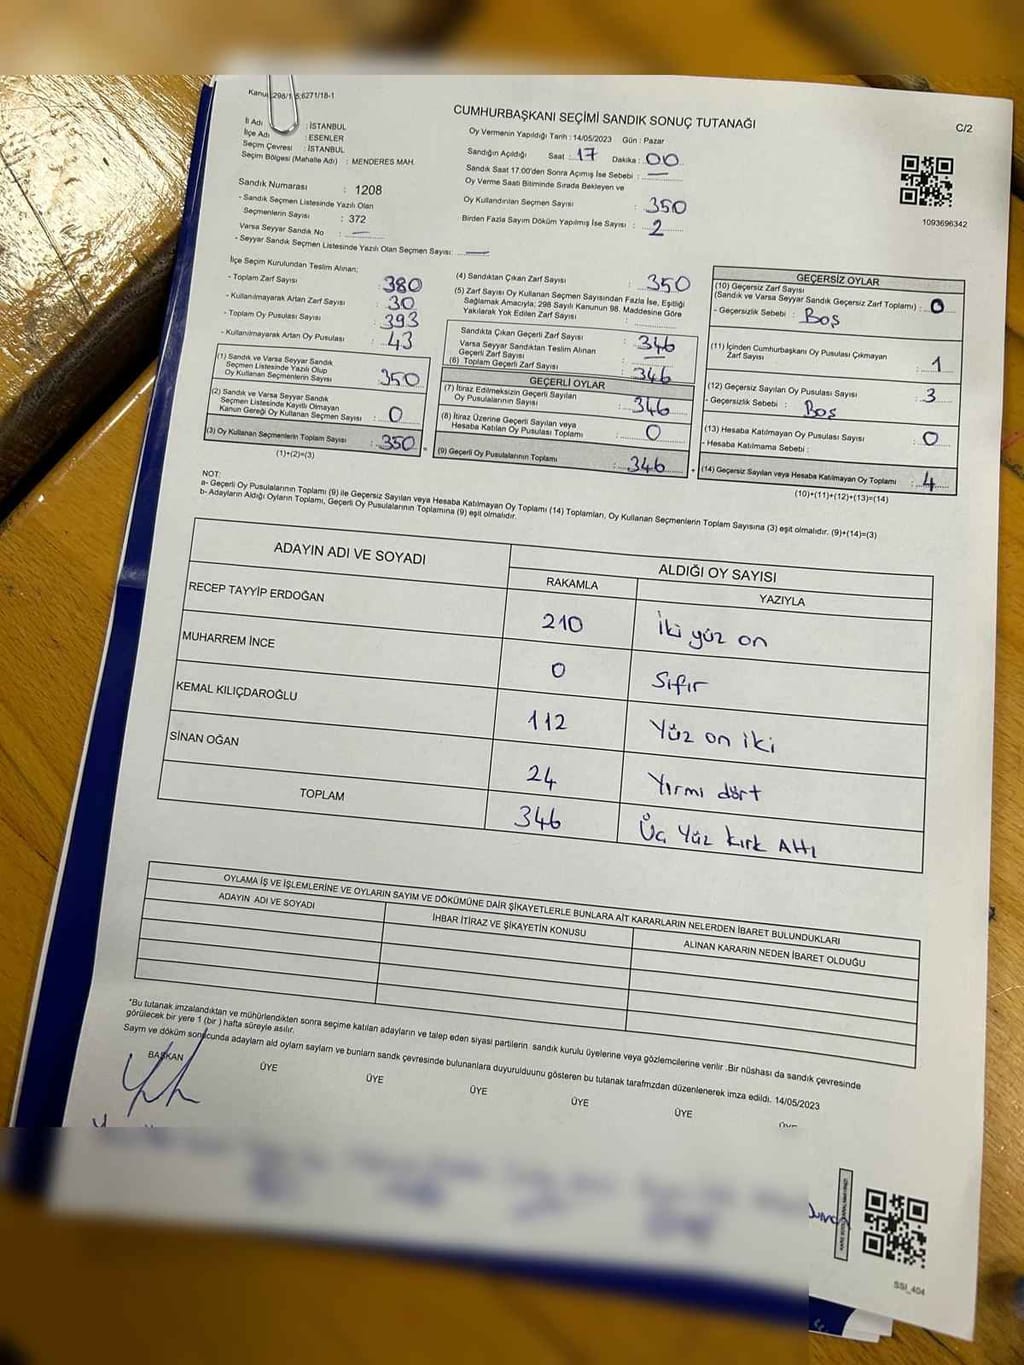 Kanu 298/1 5;6271/18-1
CUMHURBAŞKANI SEÇİMİ SANDIK SONUÇ TUTANAĞI
C/2
İl Adı : İSTANBUL
İlçe Adı : ESENLER
Seçim Çevresi : İSTANBUL
Seçim Bölgesi (Mahalle Adı) : MENDERES MAH.
Oy Vermenin Yapıldığı Tarih : 14/05/2023 Gün : Pazar
Sandığın Açıldığı Saat : 17 Dakika : 00
Sandık Saat 17.00'den Sonra Açımış İse Sebebi : —
Oy Verme Saati Bitiminde Sırada Bekleyen ve
Oy Kullandırılan Seçmen Sayısı : 350
Birden Fazla Sayım Döküm Yapılmış İse Sayısı : 2
1093696342
Sandık Numarası : 1208
- Sandık Seçmen Listesinde Yazılı Olan
Seçmenlerin Sayısı : 372
Varsa Seyyar Sandık No : —
- Seyyar Sandık Seçmen Listesinde Yazılı Olan Seçmen Sayısı : —
İlçe Seçim Kurulundan Teslim Alınan;
- Toplam Zarf Sayısı : 380
- Kullanılmayarak Artan Zarf Sayısı : 30
- Toplam Oy Pusulası Sayısı : 393
- Kullanılmayarak Artan Oy Pusulası : 43
(1) Sandık ve Varsa Seyyar Sandık
Seçmen Listesinde Yazılı Olup
Oy Kullanan Seçmenlerin Sayısı : 350
(2) Sandık ve Varsa Seyyar Sandık
Seçmen Listesinde Kayıtlı Olmayan
Kanun Gereği Oy Kullanan Seçmen Sayısı : 0
(3) Oy Kullanan Seçmenlerin Toplam Sayısı : 350 =
(1)+(2)=(3)
(4) Sandıktan Çıkan Zarf Sayısı : 350
(5) Zarf Sayısı Oy Kullanan Seçmen Sayısından Fazla İse, Eşitliği
Sağlamak Amacıyla; 298 Sayılı Kanunun 98. Maddesine Göre
Yakılarak Yok Edilen Zarf Sayısı :
Sandıkta Çıkan Geçerli Zarf Sayısı : 346
Varsa Seyyar Sandıktan Teslim Alınan
Geçerli Zarf Sayısı : —
(6) Toplam Geçerli Zarf Sayısı : 346
GEÇERLİ OYLAR
(7) İtiraz Edilmeksizin Geçerli Sayılan
Oy Pusulalarının Sayısı : 346
(8) İtiraz Üzerine Geçerli Sayılan veya
Hesaba Katılan Oy Pusulası Toplamı : 0
(9) Geçerli Oy Pusulalarının Toplamı : 346 +
GEÇERSİZ OYLAR
(10) Geçersiz Zarf Sayısı
(Sandık ve Varsa Seyyar Sandık Geçersiz Zarf Toplamı) : 0
- Geçersizlik Sebebi : Boş
(11) İçinden Cumhurbaşkanı Oy Pusulası Çıkmayan
Zarf Sayısı : 1
(12) Geçersiz Sayılan Oy Pusulası Sayısı : 3
- Geçersizlik Sebebi : Boş
(13) Hesaba Katılmayan Oy Pusulası Sayısı : 0
- Hesaba Katılmama Sebebi :
(14) Geçersiz Sayılan veya Hesaba Katılmayan Oy Toplamı : 4
(10)+(11)+(12)+(13)=(14)
NOT:
a- Geçerli Oy Pusulalarının Toplamı (9) ile Geçersiz Sayılan veya Hesaba Katılmayan Oy Toplamı (14) Toplamları, Oy Kullanan Seçmenlerin Toplam Sayısına (3) eşit olmalıdır. (9)+(14)=(3)
b- Adayların Aldığı Oyların Toplamı, Geçerli Oy Pusulalarının Toplamına (9) eşit olmalıdır.
ADAYIN ADI VE SOYADI
ALDIĞI OY SAYISI
RAKAMLA YAZIYLA
RECEP TAYYİP ERDOĞAN 210 İki yüz on
MUHARREM İNCE 0 Sıfır
KEMAL KILIÇDAROĞLU 112 Yüz on iki
SİNAN OĞAN 24 Yirmi dört
TOPLAM 346 Üç Yüz kırk Altı
OYLAMA İŞ VE İŞLEMLERİNE VE OYLARIN SAYIM VE DÖKÜMÜNE DAİR ŞİKAYETLERLE BUNLARA AİT KARARLARIN NELERDEN İBARET BULUNDUKLARI
ADAYIN ADI VE SOYADI
İHBAR İTİRAZ VE ŞİKAYETİN KONUSU
ALINAN KARARIN NEDEN İBARET OLDUĞU
*Bu tutanak imzalandıktan ve mühürlendikten sonra seçime katılan adayların ve talep eden siyasi partilerin sandık kurulu üyelerine veya gözlemcilerine verilir .Bir nüshası da sandık çevresinde
görülecek bir yere 1 (bir ) hafta süreyle asılır.
Sayım ve döküm sonucunda adaylarn ald oylarn saylarn ve bunlarn sandk çevresinde bulunanlara duyurulduunu gösteren bu tutanak tarafmzdan düzenlenerek imza edildi. 14/05/2023
BAŞKAN
ÜYE ÜYE ÜYE ÜYE ÜYE
SSİ_404